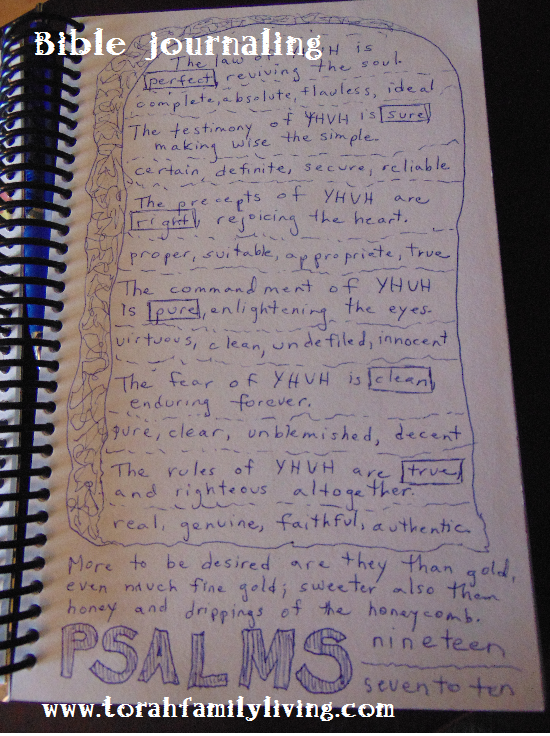 Bible journaling
The law of YHVH is
perfect, reviving the soul.
complete, absolute, flawless, ideal
The testimony of YHVH is sure
making wise the simple.
certain, definite, secure, reliable
The precepts of YHVH are
right, rejoicing the heart.
proper, suitable, appropriate, true
The commandment of YHVH
is pure, enlightening the eyes.
virtuous, clean, undefiled, innocent
The fear of YHVH is clean,
enduring forever.
pure, clear, unblemished, decent
The rules of YHVH are true,
and righteous altogether.
real, genuine, faithful, authentic
More to be desired are they than gold,
even much fine gold; sweeter also then
honey and drippings of the honeycomb.
PSALMS nineteen
seven to ten
www.torahfamilyliving.com